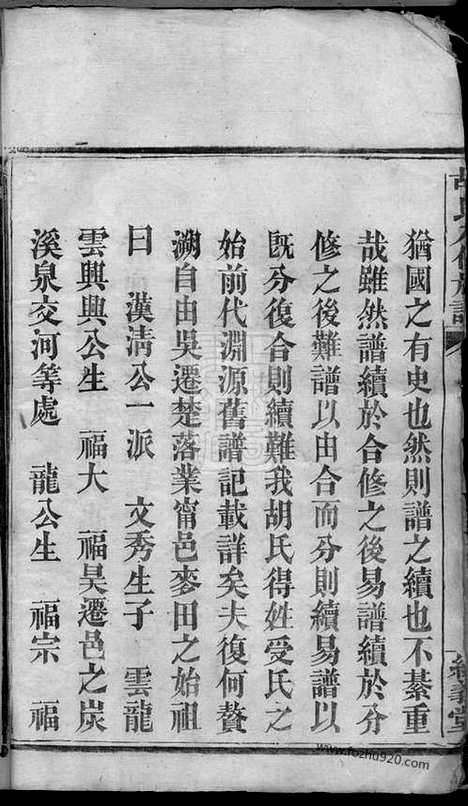 猶國之有史也然則譜之續也不綦重
哉雖然譜續於合修之後易譜續於分
修之後難譜以由合而分則續易譜以
既分復合則續難我胡氏得姓受氏之
始前代淵源舊譜記載詳矣夫復何贅
溯自由吳遷楚落業甯邑麥田之始祖
曰 漢清公一派 文秀生子 雲龍
雲興興公生 福大 福昊遷邑之炭
溪泉交河等處 龍公生 福宗 福
www.fozhu920.com